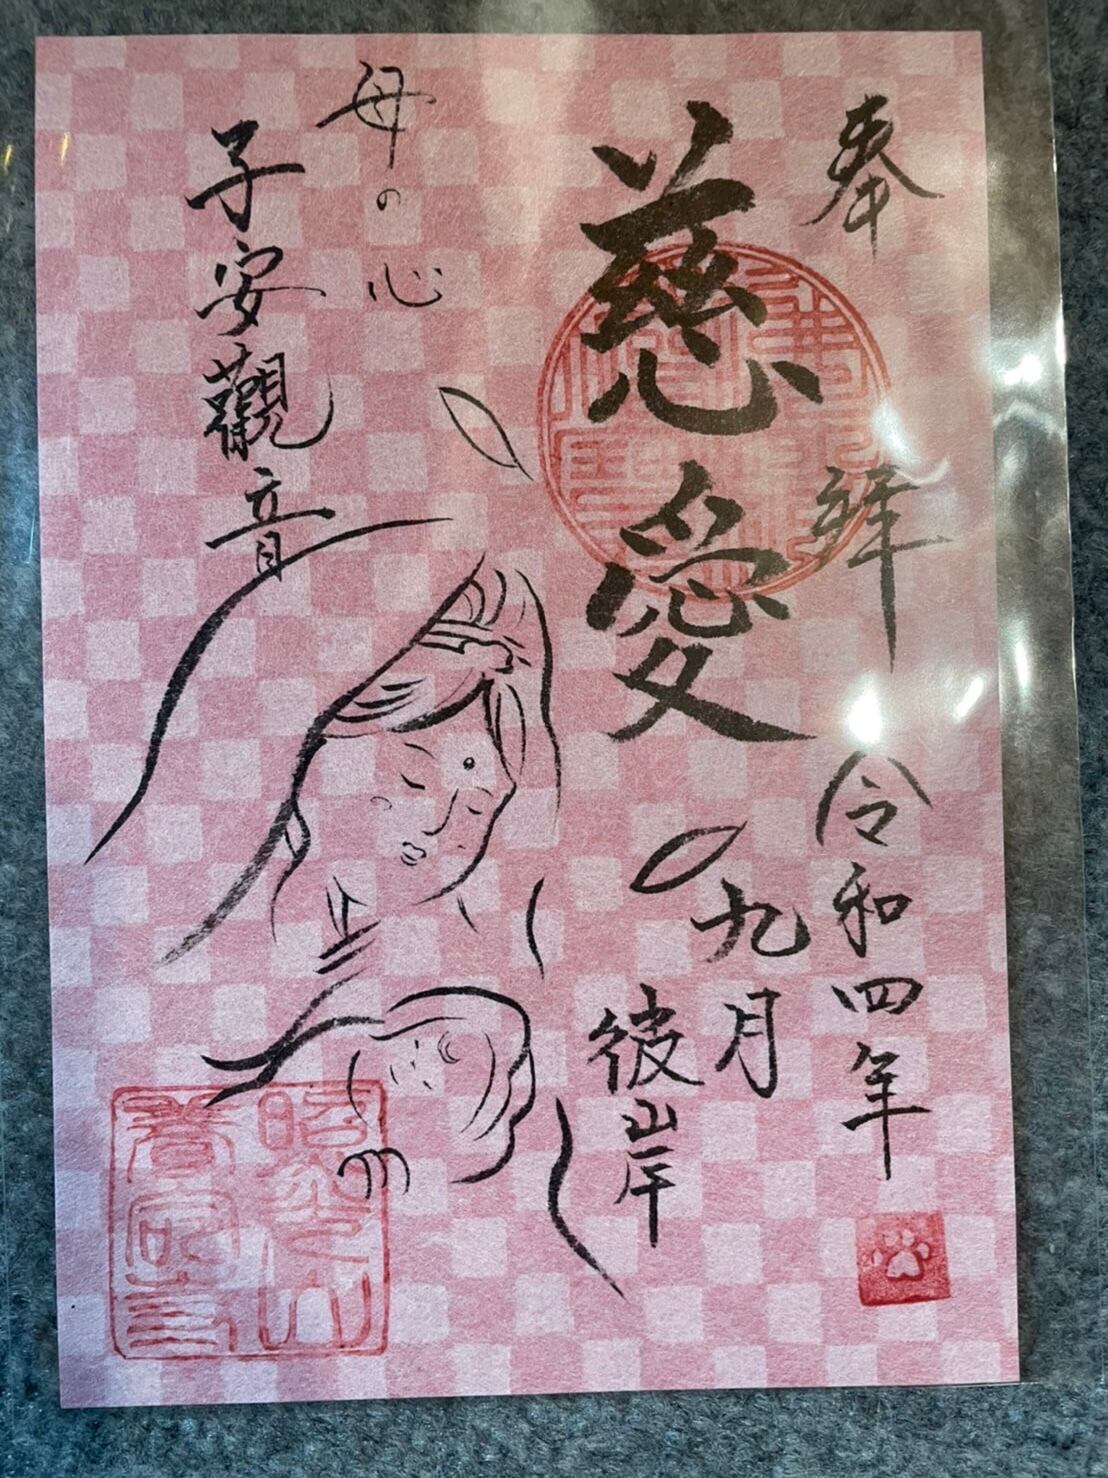 奉拝
令和四年
九月
彼岸
慈愛
母の心
子安觀音